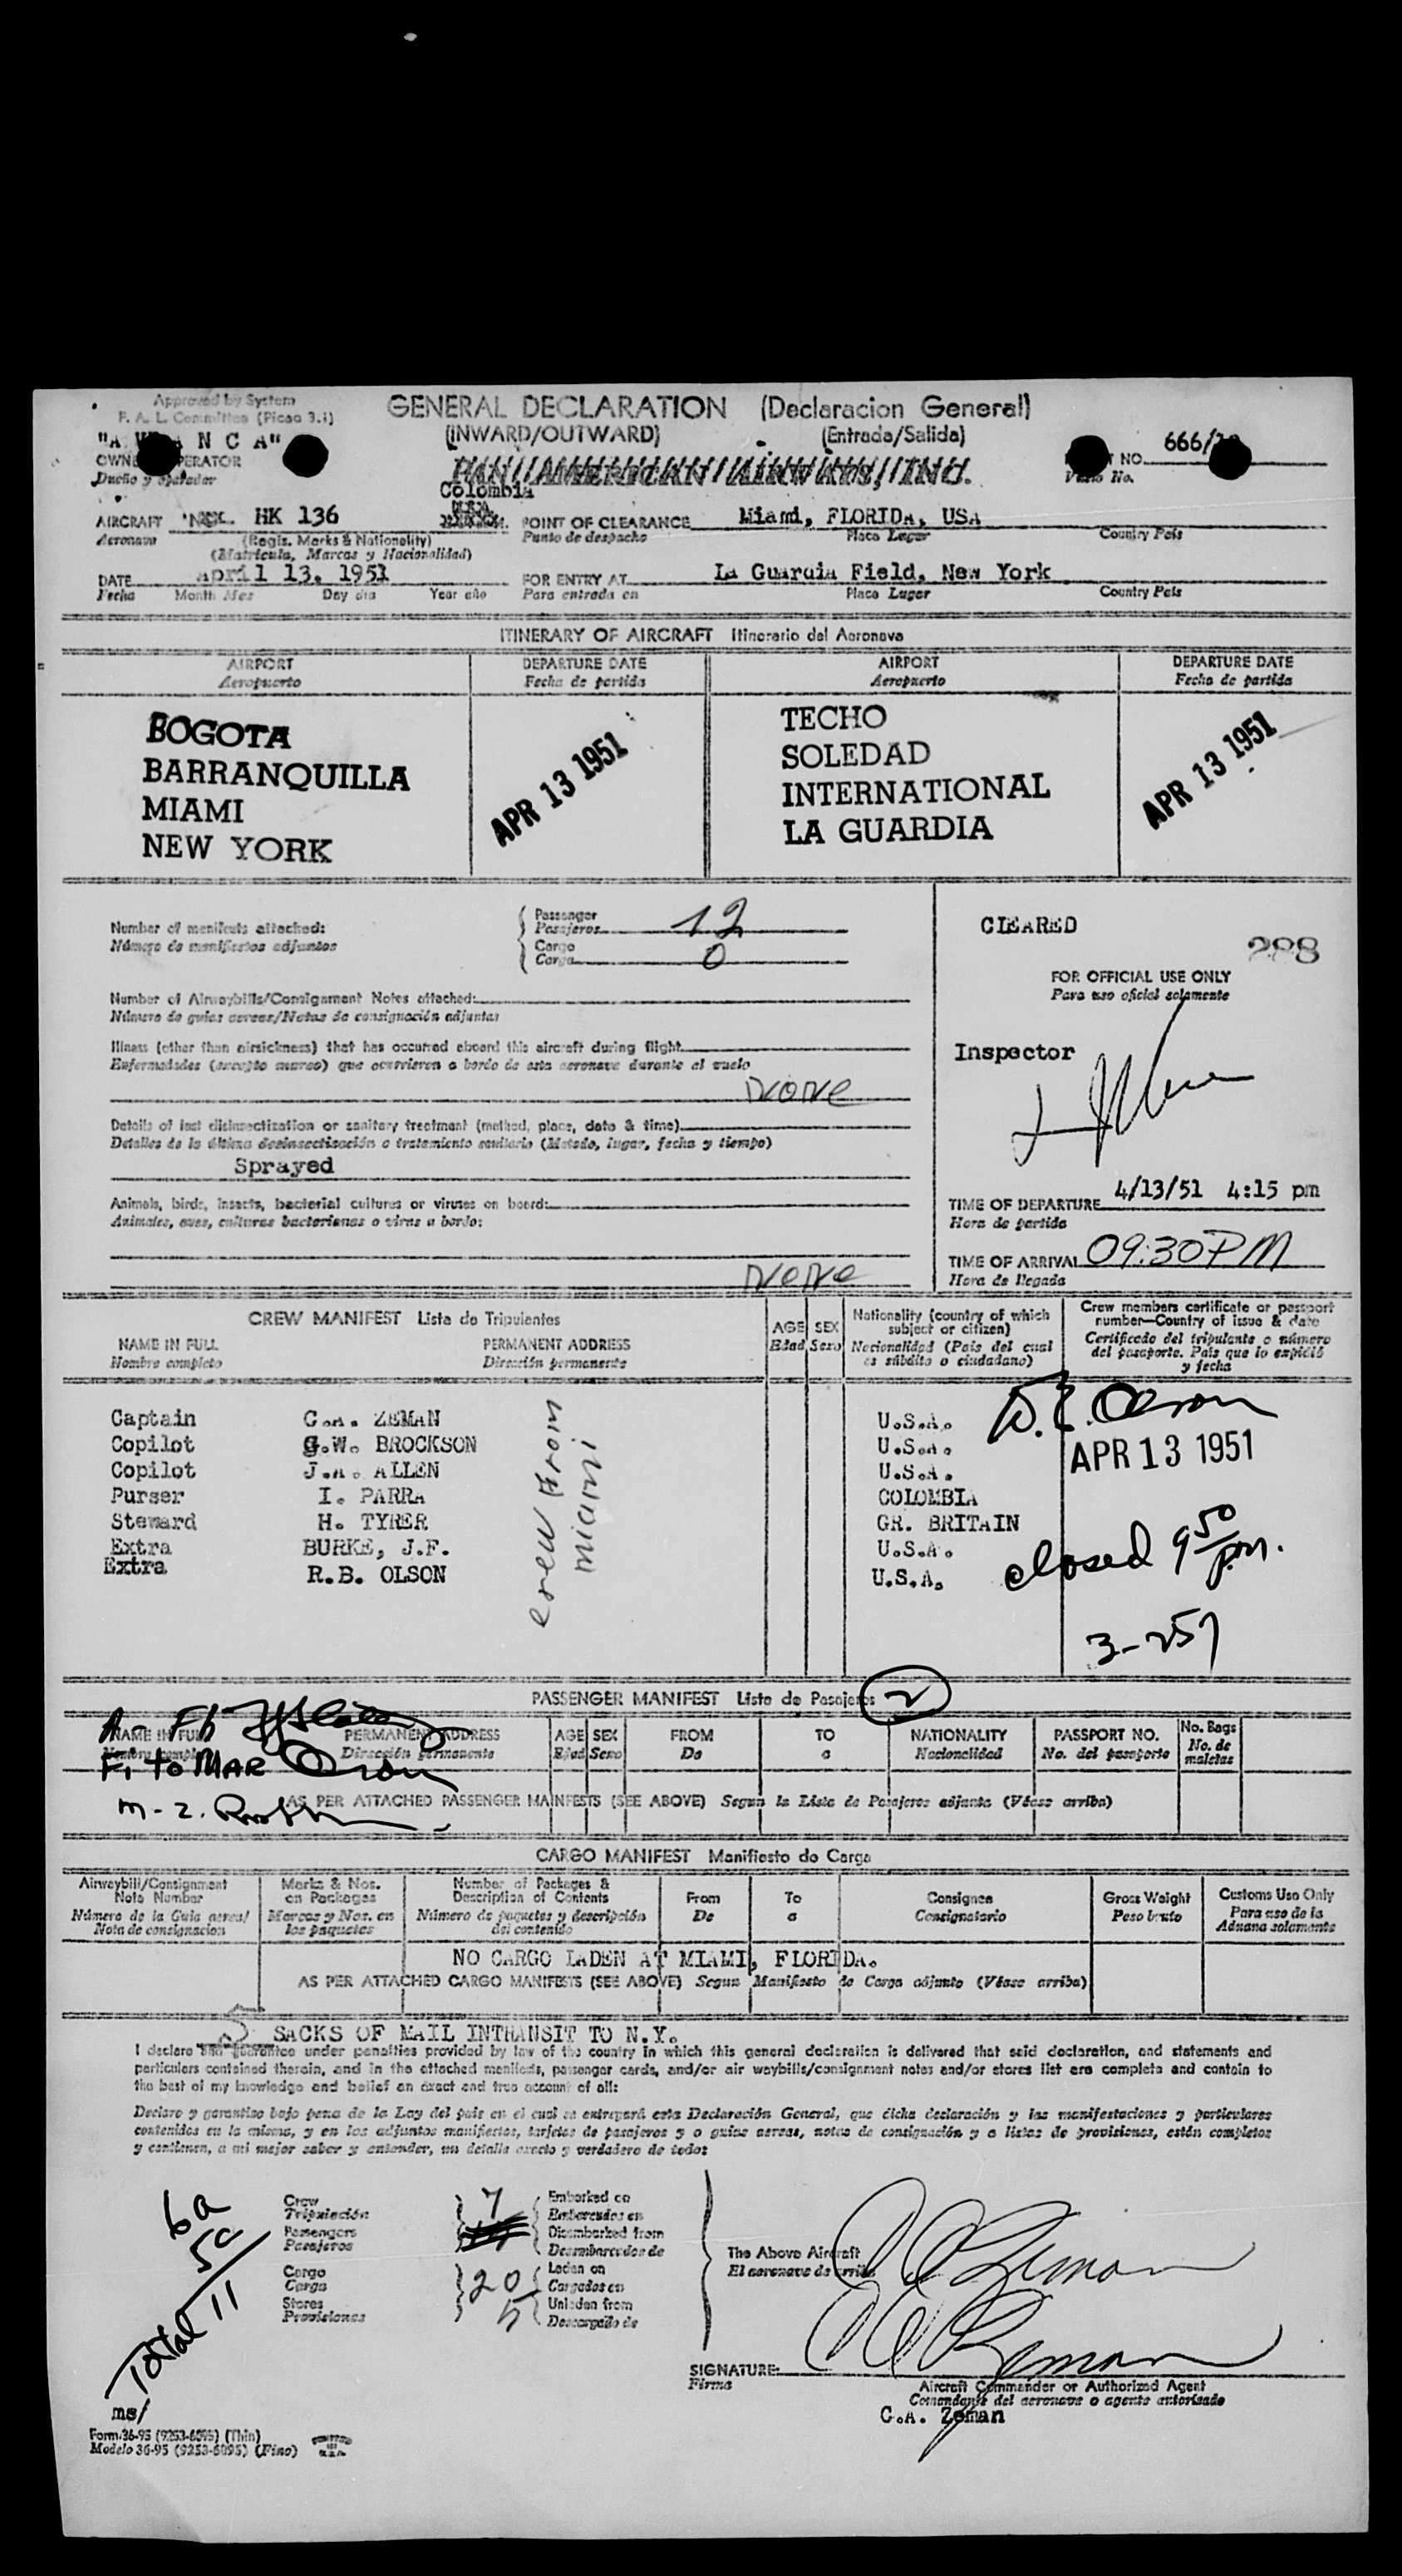 Approved by System
F. A. L. Committee (Picao 3.1)
GENERAL DECLARATION (Declaracion General)
(INWARD/OUTWARD) (Entrada/Salida)
"A V I A N C A"
OWNER OPERATOR
Dueño y operador
PAN AMERICAN AIRWAYS, INC.
NO. 666/
Vuelo No.
Colombia
AIRCRAFT HK 136
Aeronave (Regis. Marks & Nationality)
(Matricula, Marcas y Nacionalidad)
POINT OF CLEARANCE Miami, FLORIDA, USA
Punto de despacho Place Lugar Country País
DATE April 13, 1951
Fecha Month Mes Day dia Year año
FOR ENTRY AT La Guardia Field, New York
Para entrada en Place Lugar Country País
ITINERARY OF AIRCRAFT Itinerario del Aeronave
AIRPORT DEPARTURE DATE AIRPORT DEPARTURE DATE
Aeropuerto Fecha de partida Aeropuerto Fecha de partida
BOGOTA TECHO
BARRANQUILLA SOLEDAD
MIAMI INTERNATIONAL
NEW YORK LA GUARDIA
APR 13 1951 APR 13 1951
Number of manifests attached:
Número de manifiestos adjuntos
Passenger
Pasajeros 12
Cargo
Carga 0
CLEARED
288
FOR OFFICIAL USE ONLY
Para uso oficial solamente
Number of Airwaybills/Consignment Notes attached:
Número de guias aereas/Notas de consignación adjuntas
Illness (other than airsickness) that has occurred aboard this aircraft during flight
Enfermedades (excepto mareo) que ocurrieron a bordo de esta aeronave durante el vuelo
None
Inspector
Details of last disinsectization or sanitary treatment (method, place, date & time)
Detalles de la última desinsectización o tratamiento sanitario (Metodo, lugar, fecha y tiempo)
Sprayed
Animals, birds, insects, bacterial cultures or viruses on board:
Animales, aves, culturas bacterianas o virus a bordo:
None
TIME OF DEPARTURE 4/13/51 4:15 pm
Hora de partida
TIME OF ARRIVAL 09:30 PM
Hora de llegada
CREW MANIFEST Lista de Tripulantes
NAME IN FULL PERMANENT ADDRESS
Nombre completo Dirección permanente
AGE SEX
Edad Sexo
Nationality (country of which subject or citizen)
Nacionalidad (País del cual es súbdito o ciudadano)
Crew members certificate or passport number—Country of issue & date
Certificado del tripulante o número del pasaporte. País que lo expidió y fecha
Captain C.A. ZEMAN U.S.A.
Copilot G.W. BROCKSON U.S.A.
Copilot J.A. ALLEN U.S.A.
Purser I. PARRA COLOMBIA
Steward H. TYRER GR. BRITAIN
Extra BURKE, J.F. U.S.A.
Extra R.B. OLSON U.S.A.
crew from
miami
Olson
APR 13 1951
closed 9 50 p.m.
3-257
PASSENGER MANIFEST Lista de Pasajeros 2
NAME IN FULL PERMANENT ADDRESS AGE SEX FROM TO NATIONALITY PASSPORT NO. No. Bags
Nombre completo Dirección permanente Edad Sexo De a Nacionalidad No. del pasaporte No. de maletas
Fi to MAR Olson
M-Z.
AS PER ATTACHED PASSENGER MAINFESTS (SEE ABOVE) Segun la Lista de Pasajeros adjunta (Véase arriba)
CARGO MANIFEST Manifiesto de Carga
Airwaybill/Consignment Note Number
Número de la Guia aerea/Nota de consignacion
Marks & Nos. on Packages
Marcas y Nos. en los paquetes
Number of Packages & Description of Contents
Número de paquetes y descripción del contenido
From To Consignee Gross Weight Customs Use Only
De a Consignatorio Peso bruto Para uso de la Aduana solamente
NO CARGO LADEN AT MIAMI, FLORIDA.
AS PER ATTACHED CARGO MANIFESTS (SEE ABOVE) Segun Manifiesto de Carga adjunto (Véase arriba)
SACKS OF MAIL INTRANSIT TO N.Y.
I declare and guarantee under penalties provided by law of the country in which this general declaration is delivered that said declaration, and statements and
particulars contained therein, and in the attached manifests, passenger cards, and/or air waybills/consignment notes and/or stores list are complete and contain to
the best of my knowledge and belief an exact and true account of all:
Declaro y garantizo bajo pena de la Ley del país en el cual se entregará esta Declaración General, que dicha declaración y las manifestaciones y particulares
contenidos en la misma, y en los adjuntos manifiestos, tarjetas de pasajeros y o guias aereas, notas de consignación y o listas de provisiones, están completos
y contienen, a mi mejor saber y entender, un detalle exacto y verdadero de todo:
6a
5c
Total 11
Crew
Tripulación 7
Passengers
Pasajeros
Cargo
Carga 20
Stores
Provisiones
Embarked on
Embarcados en
Disembarked from
Desembarcados de
Laden on
Cargados en
Unladen from
Descargado de
The Above Aircraft
El aeronave de arriba
CA Zeman
CA Zeman
SIGNATURE
Firma
Aircraft Commander or Authorized Agent
Comandante del aeronave o agente autorizado
C.A. Zeman
ms/
Form 36-95 (9253-6095) (Thin)
Modelo 36-95 (9253-6095) (Fino)